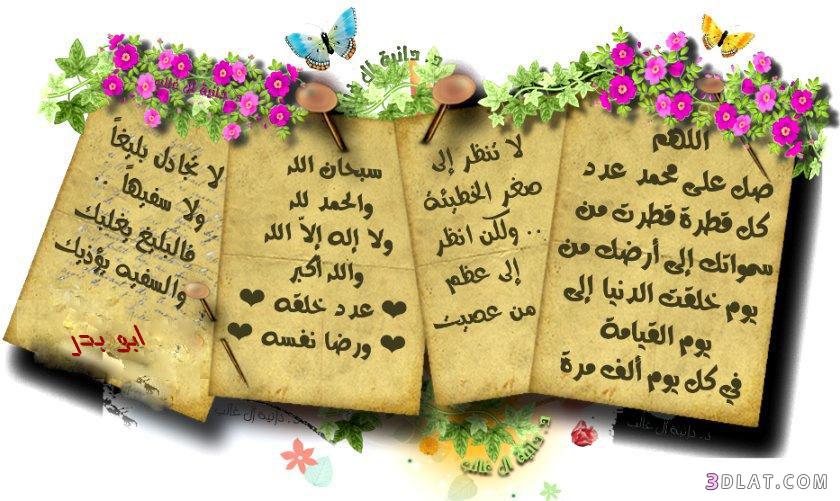 اللهم
صل على محمد عدد
كل قطرة قطرت من
سمواتك إلى أرضك من
يوم خلقت الدنيا إلى
يوم القيامة
في كل يوم ألف مرة
لا تنظر إلى
صغر الخطيئة
.. ولكن انظر
إلى عظم
من عصيت
سبحان الله
والحمد لله
ولا إله إلاّ الله
والله أكبر
❤ عدد خلقه ❤
❤ ورضا نفسه ❤
لا تجادل بليغاً
ولا سفيها ..
فالبليغ يغلبك
والسفيه يؤذيك
ابو بدر
د. دانية آل غالب
دانية آل غالب
د. دانية آل غالب
د. دانية آل غالب
د. دانية آل غالب
3DLAT.COM